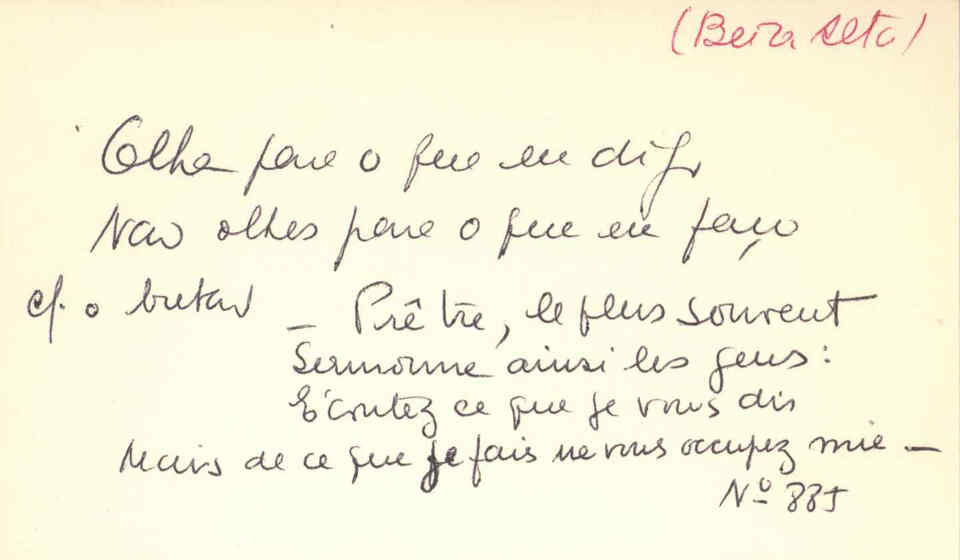 (Beira Alta)
Olha para o que eu digo
Nao olhes para o que eu faço
cf. o bretão – Prêtre, le plus souvent
Sermonne ainsi les gens :
Ecoutez ce que je vous dis
Mais de ce que je fais ne vous occupez mie –
Nº 885